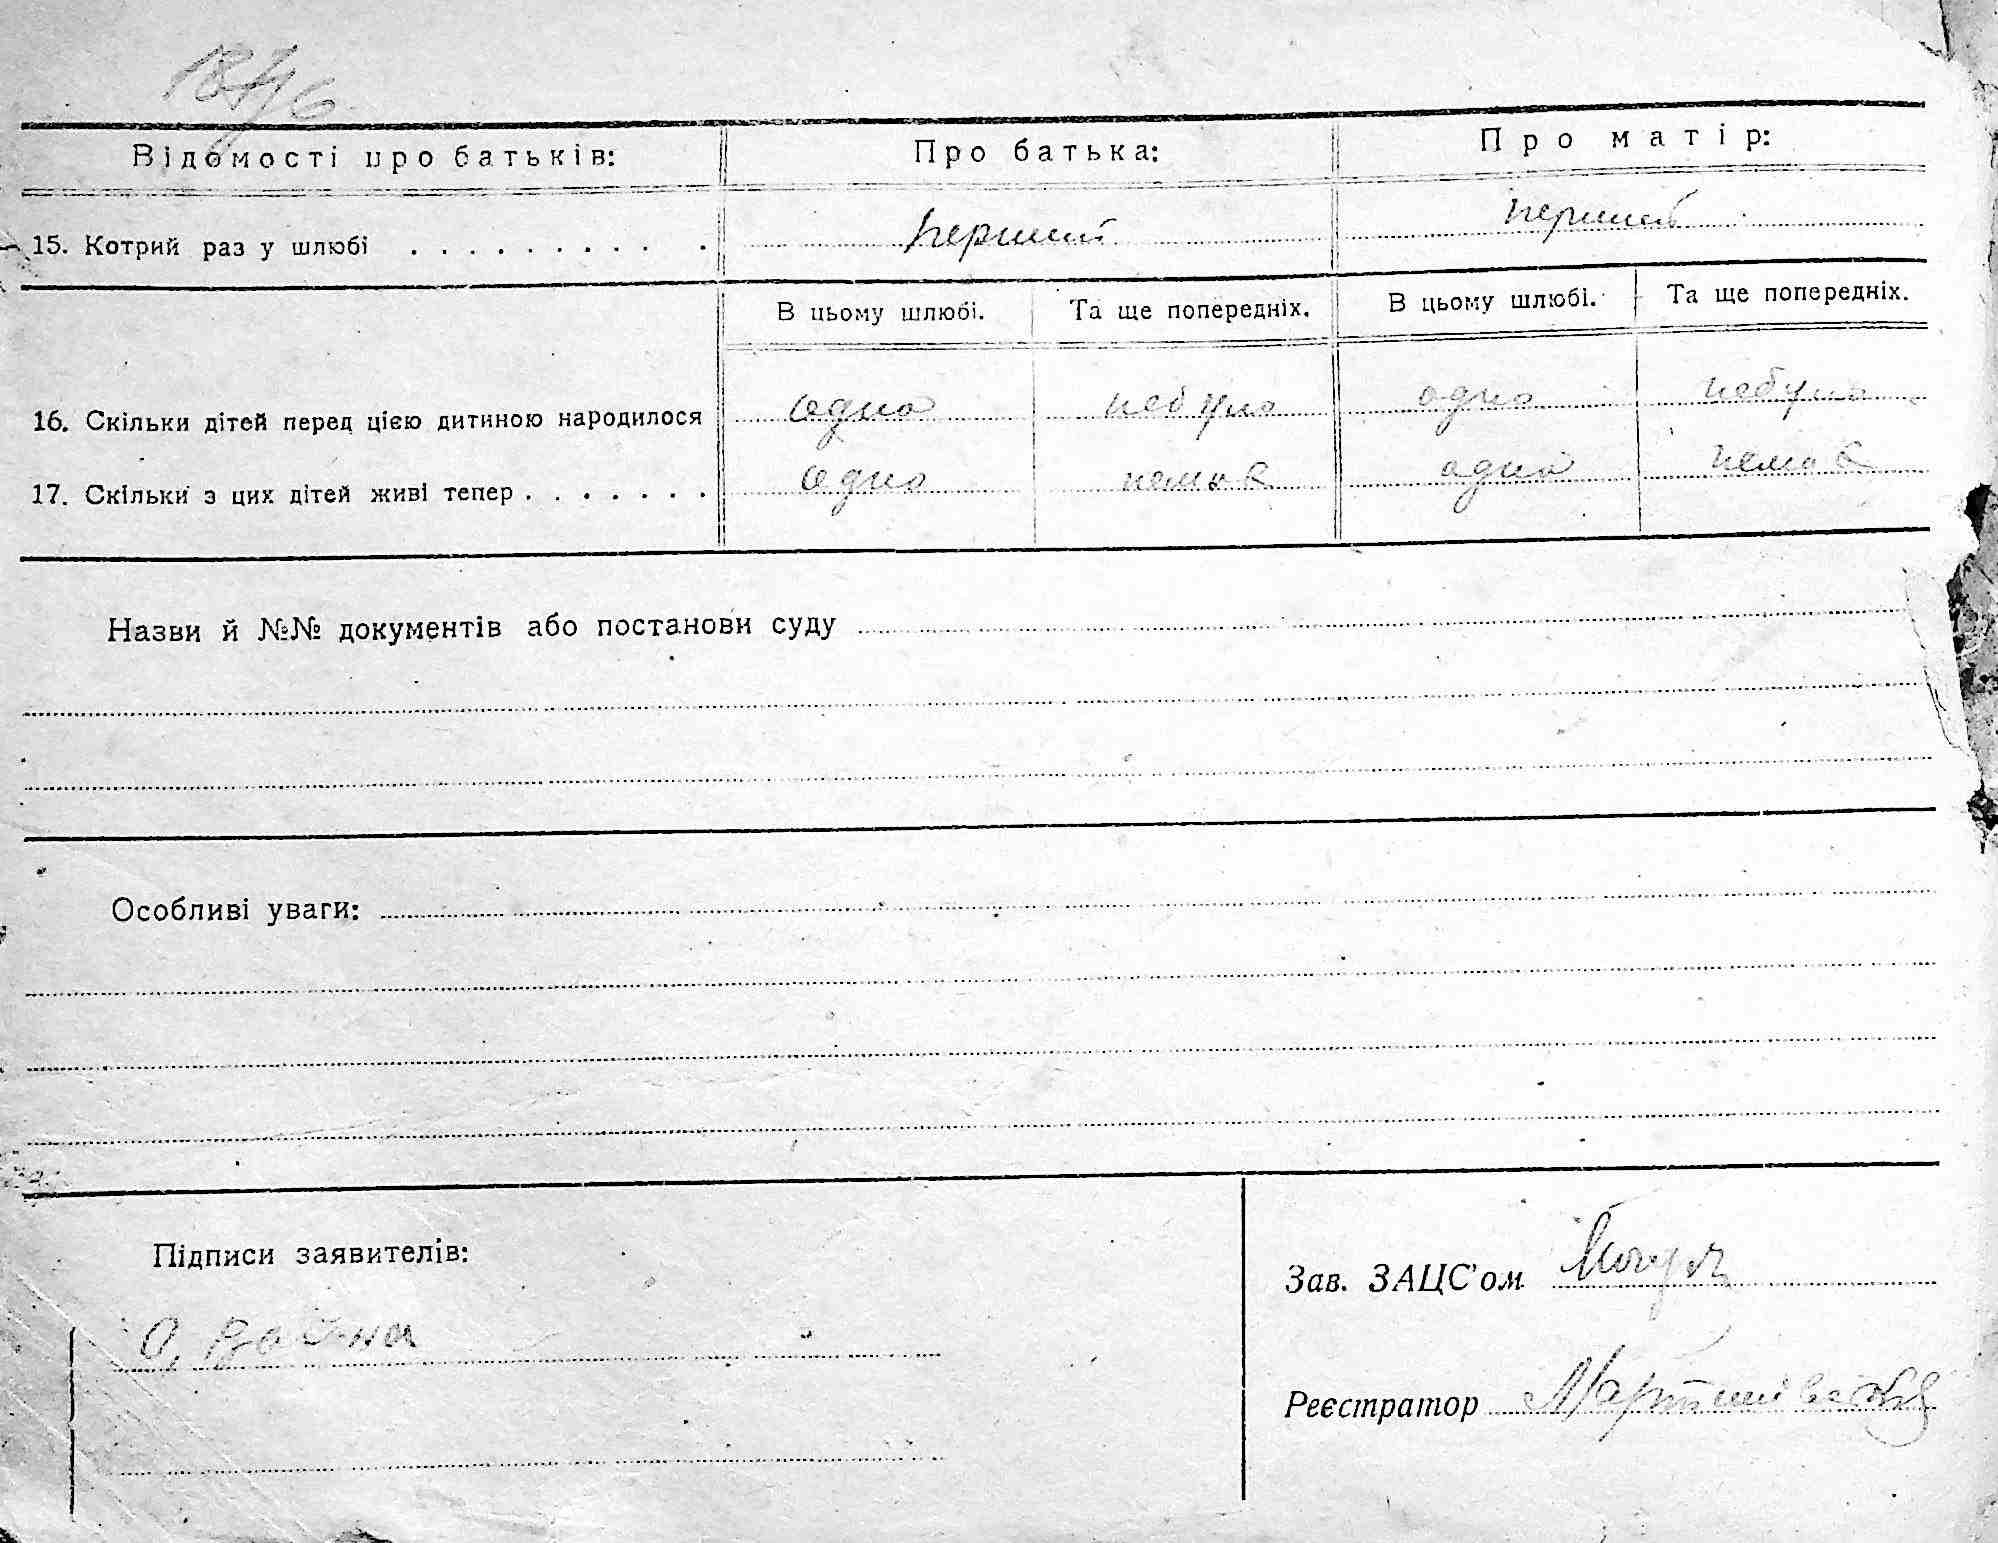 Відомості про батьків: Про батька: Про матір:
15. Котрий раз у шлюбі . . . . . . . . . . . перший перший
В цьому шлюбі. Та ще попередніх. В цьому шлюбі. Та ще попередніх.
16. Скільки дітей перед цією дитиною народилося одно небуло одно небуло
17. Скільки з цих дітей живі тепер . . . . . . . одно немає одно немає
Назви й №№ документів або постанови суду
Особливі уваги:
Підписи заявителів:
Зав. ЗАЦС'ом
О. Война
Реєстратор